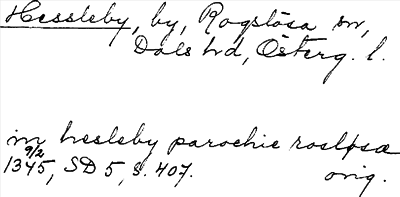 Hessleby, by, Rogslösa sn,
Dals hd, Österg. l.
in hesleby parochie rosløsæ
9/2
1345, SD 5, s. 407. orig.